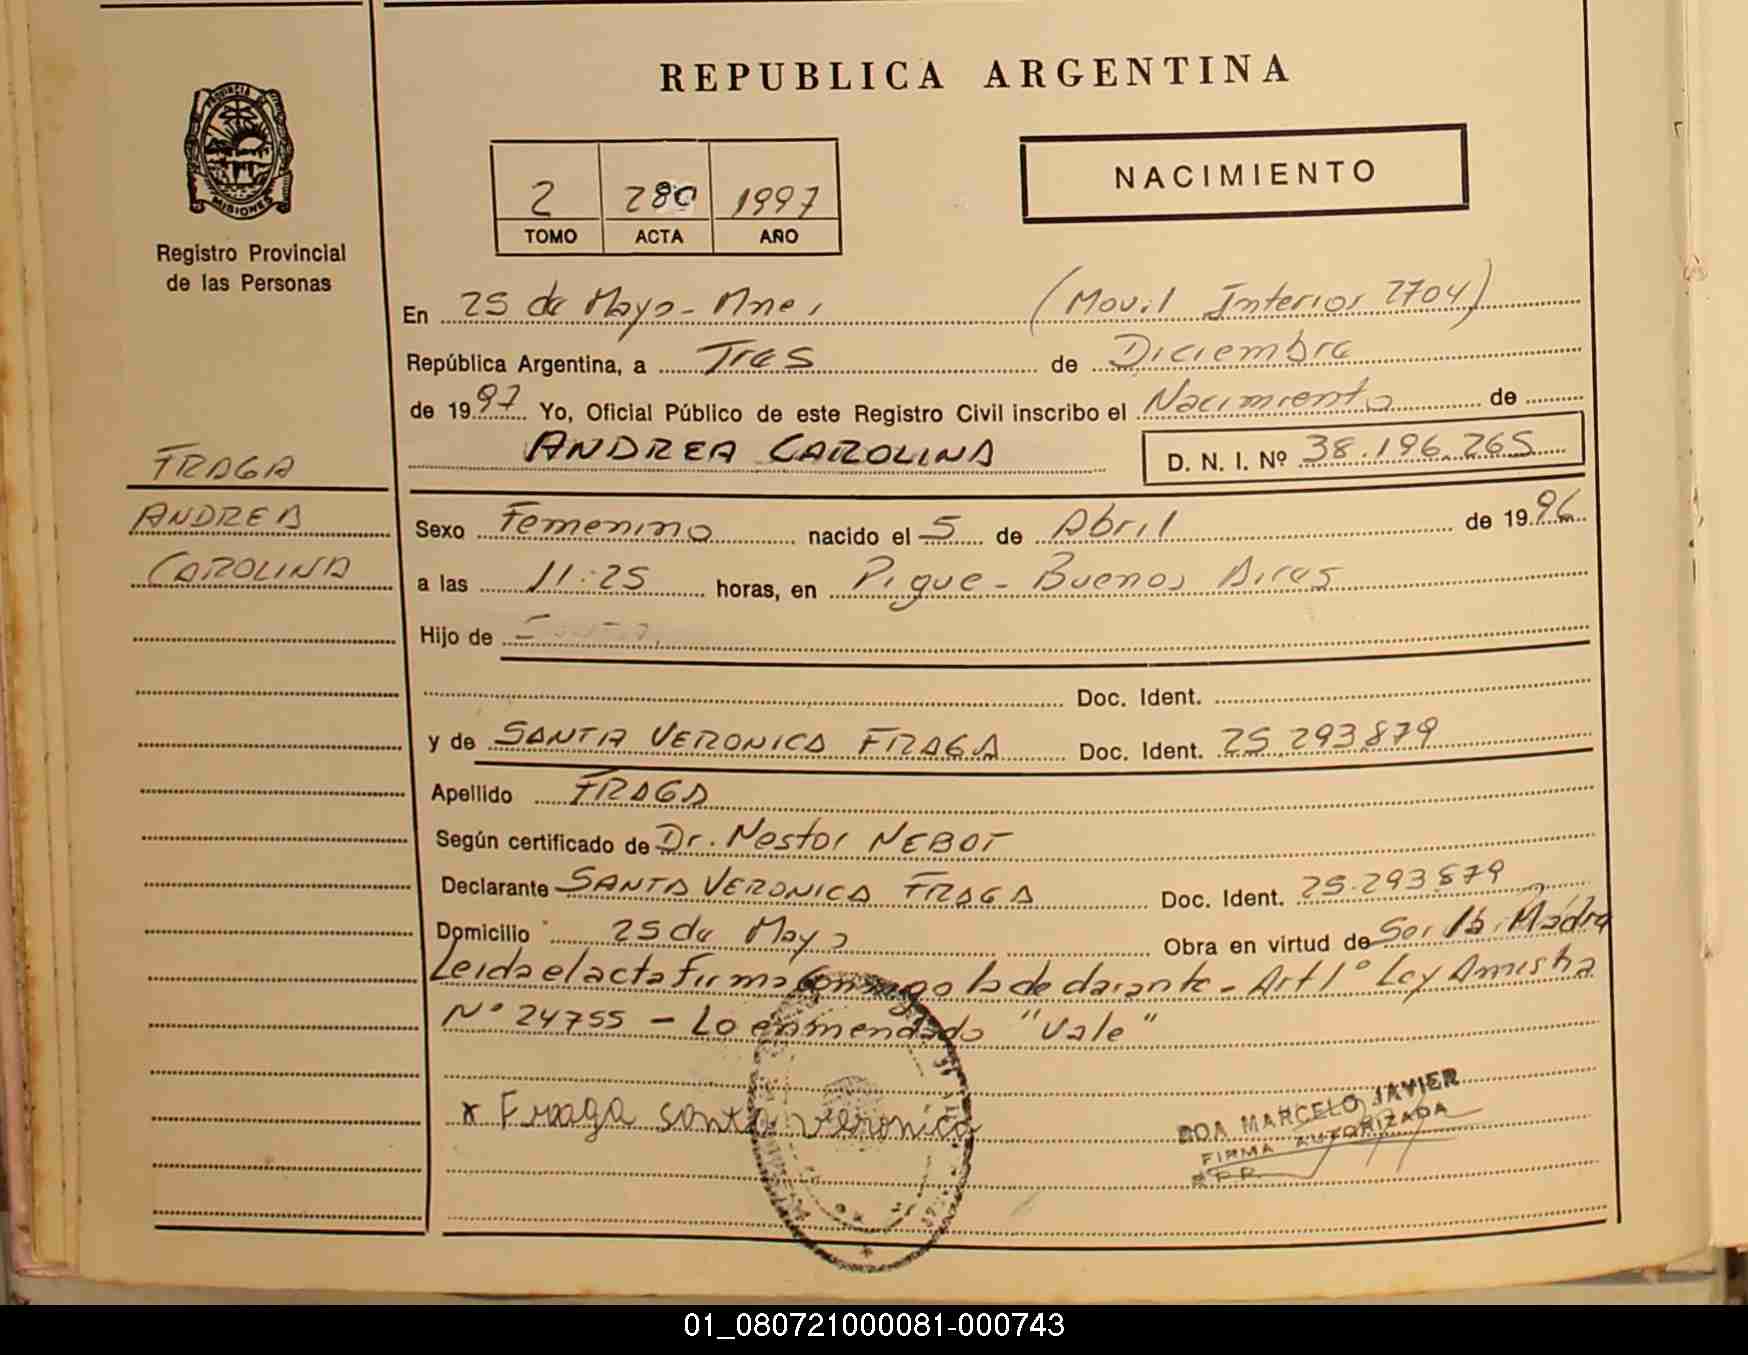 REPUBLICA ARGENTINA
PROVINCIA DE
MISIONES
Registro Provincial
de las Personas
2 280 1997
TOMO ACTA AÑO
NACIMIENTO
En 25 de Mayo - Mnes (Movil Interior 2704)
República Argentina, a Tres de Diciembre
de 1997 Yo, Oficial Público de este Registro Civil inscribo el Nacimiento de
ANDREA CAROLINA D. N. I. Nº 38.196.265
FRAGA
ANDREA
CAROLINA
Sexo Femenino nacido el 5 de Abril de 1996
a las 11:25 horas, en Pigue - Buenos Aires
Hijo de
Doc. Ident.
y de SANTA VERONICA FRAGA Doc. Ident. 25.293.879
Apellido FRAGA
Según certificado de Dr. Nestor NEBOT
Declarante SANTA VERONICA FRAGA Doc. Ident. 25.293.879
Domicilio 25 de Mayo Obra en virtud de Ser la Madre
Leida el acta firma conmigo la declarante - Art 1º Ley Amnistia
Nº 24755 - Lo enmendado "Vale"
x Fraga santa veronica
BOA MARCELO JAVIER
FIRMA AUTORIZADA
01_080721000081-000743